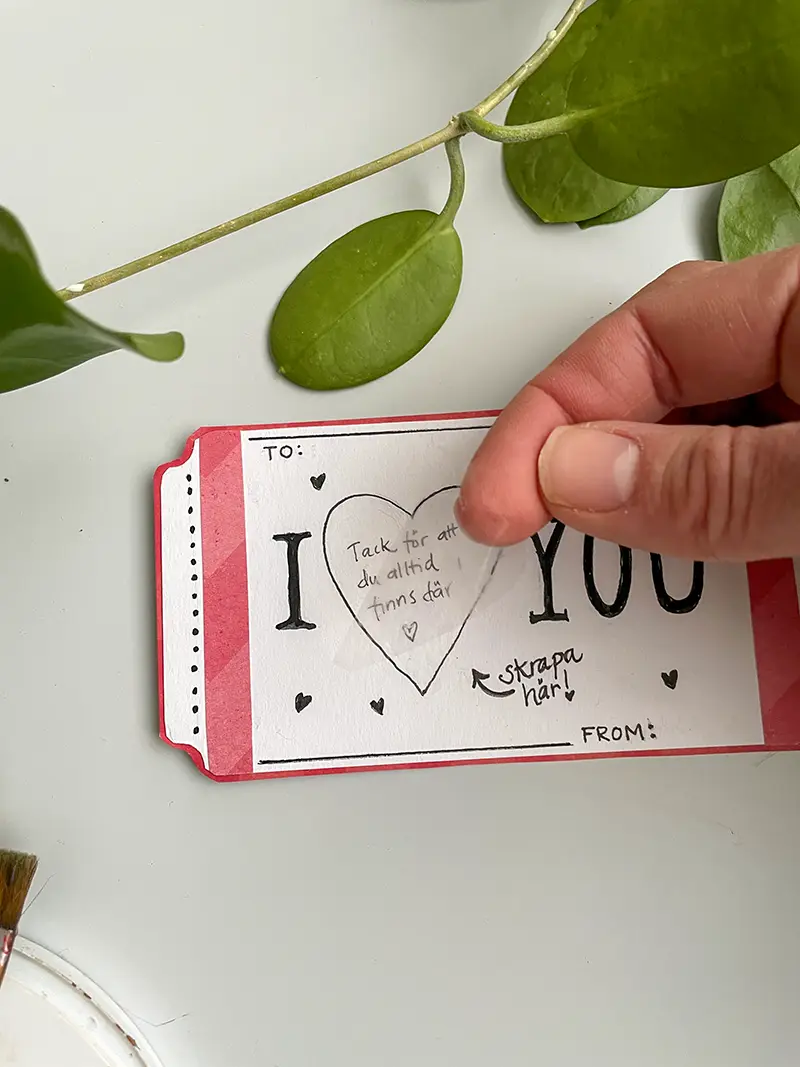 TO:
I
Tack för att
du alltid
finns där
YOU
skrapa
här!
FROM: